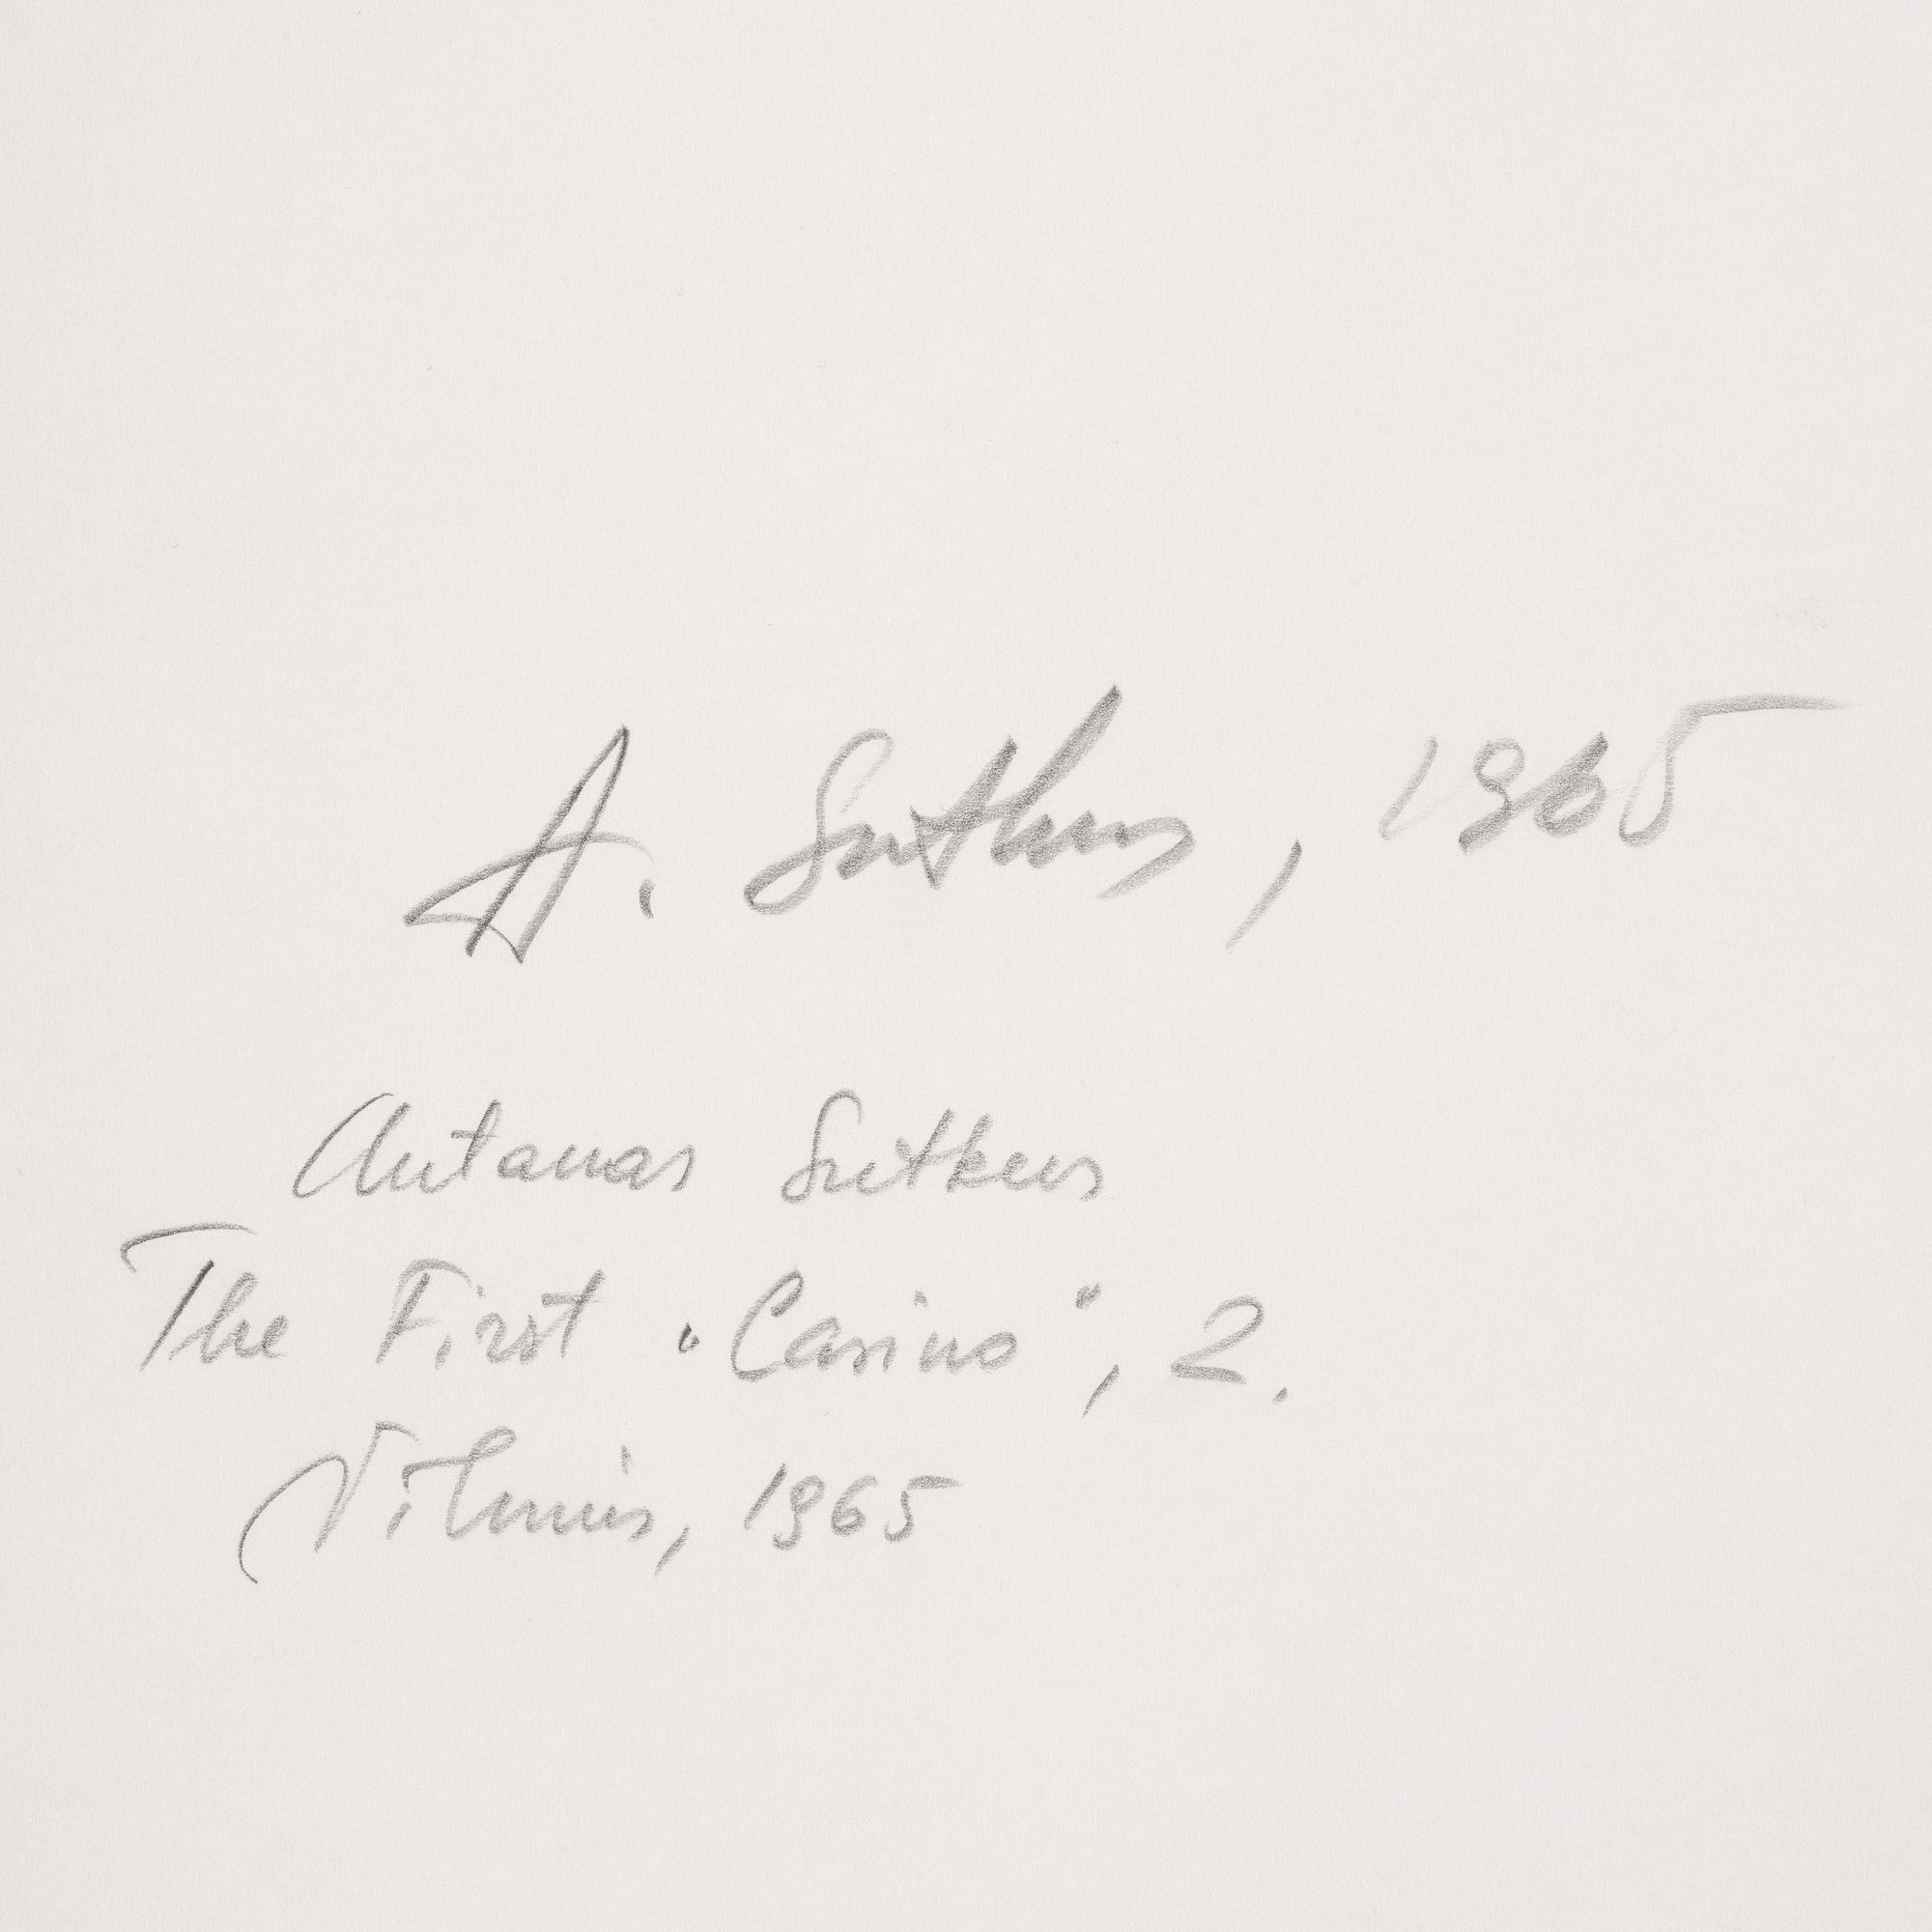 A. Sutkus, 1965
Antanas Sutkus
The First "Casino", 2.
Vilnius, 1965